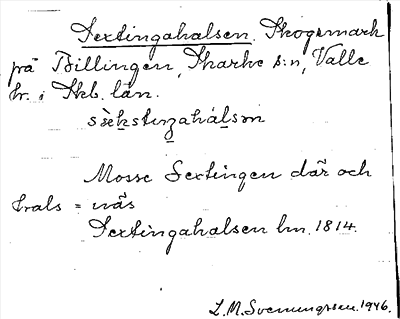 Sextingahalsen. Skogsmark
på Billingen, Skarke s:n, Valle
hr. i Skb. län.
sèkstinzahálsn
Mosse Sextingen där och
hals = näs
Sextingahalsen lm. 1814.
L. M. Svenungsson. 1946.